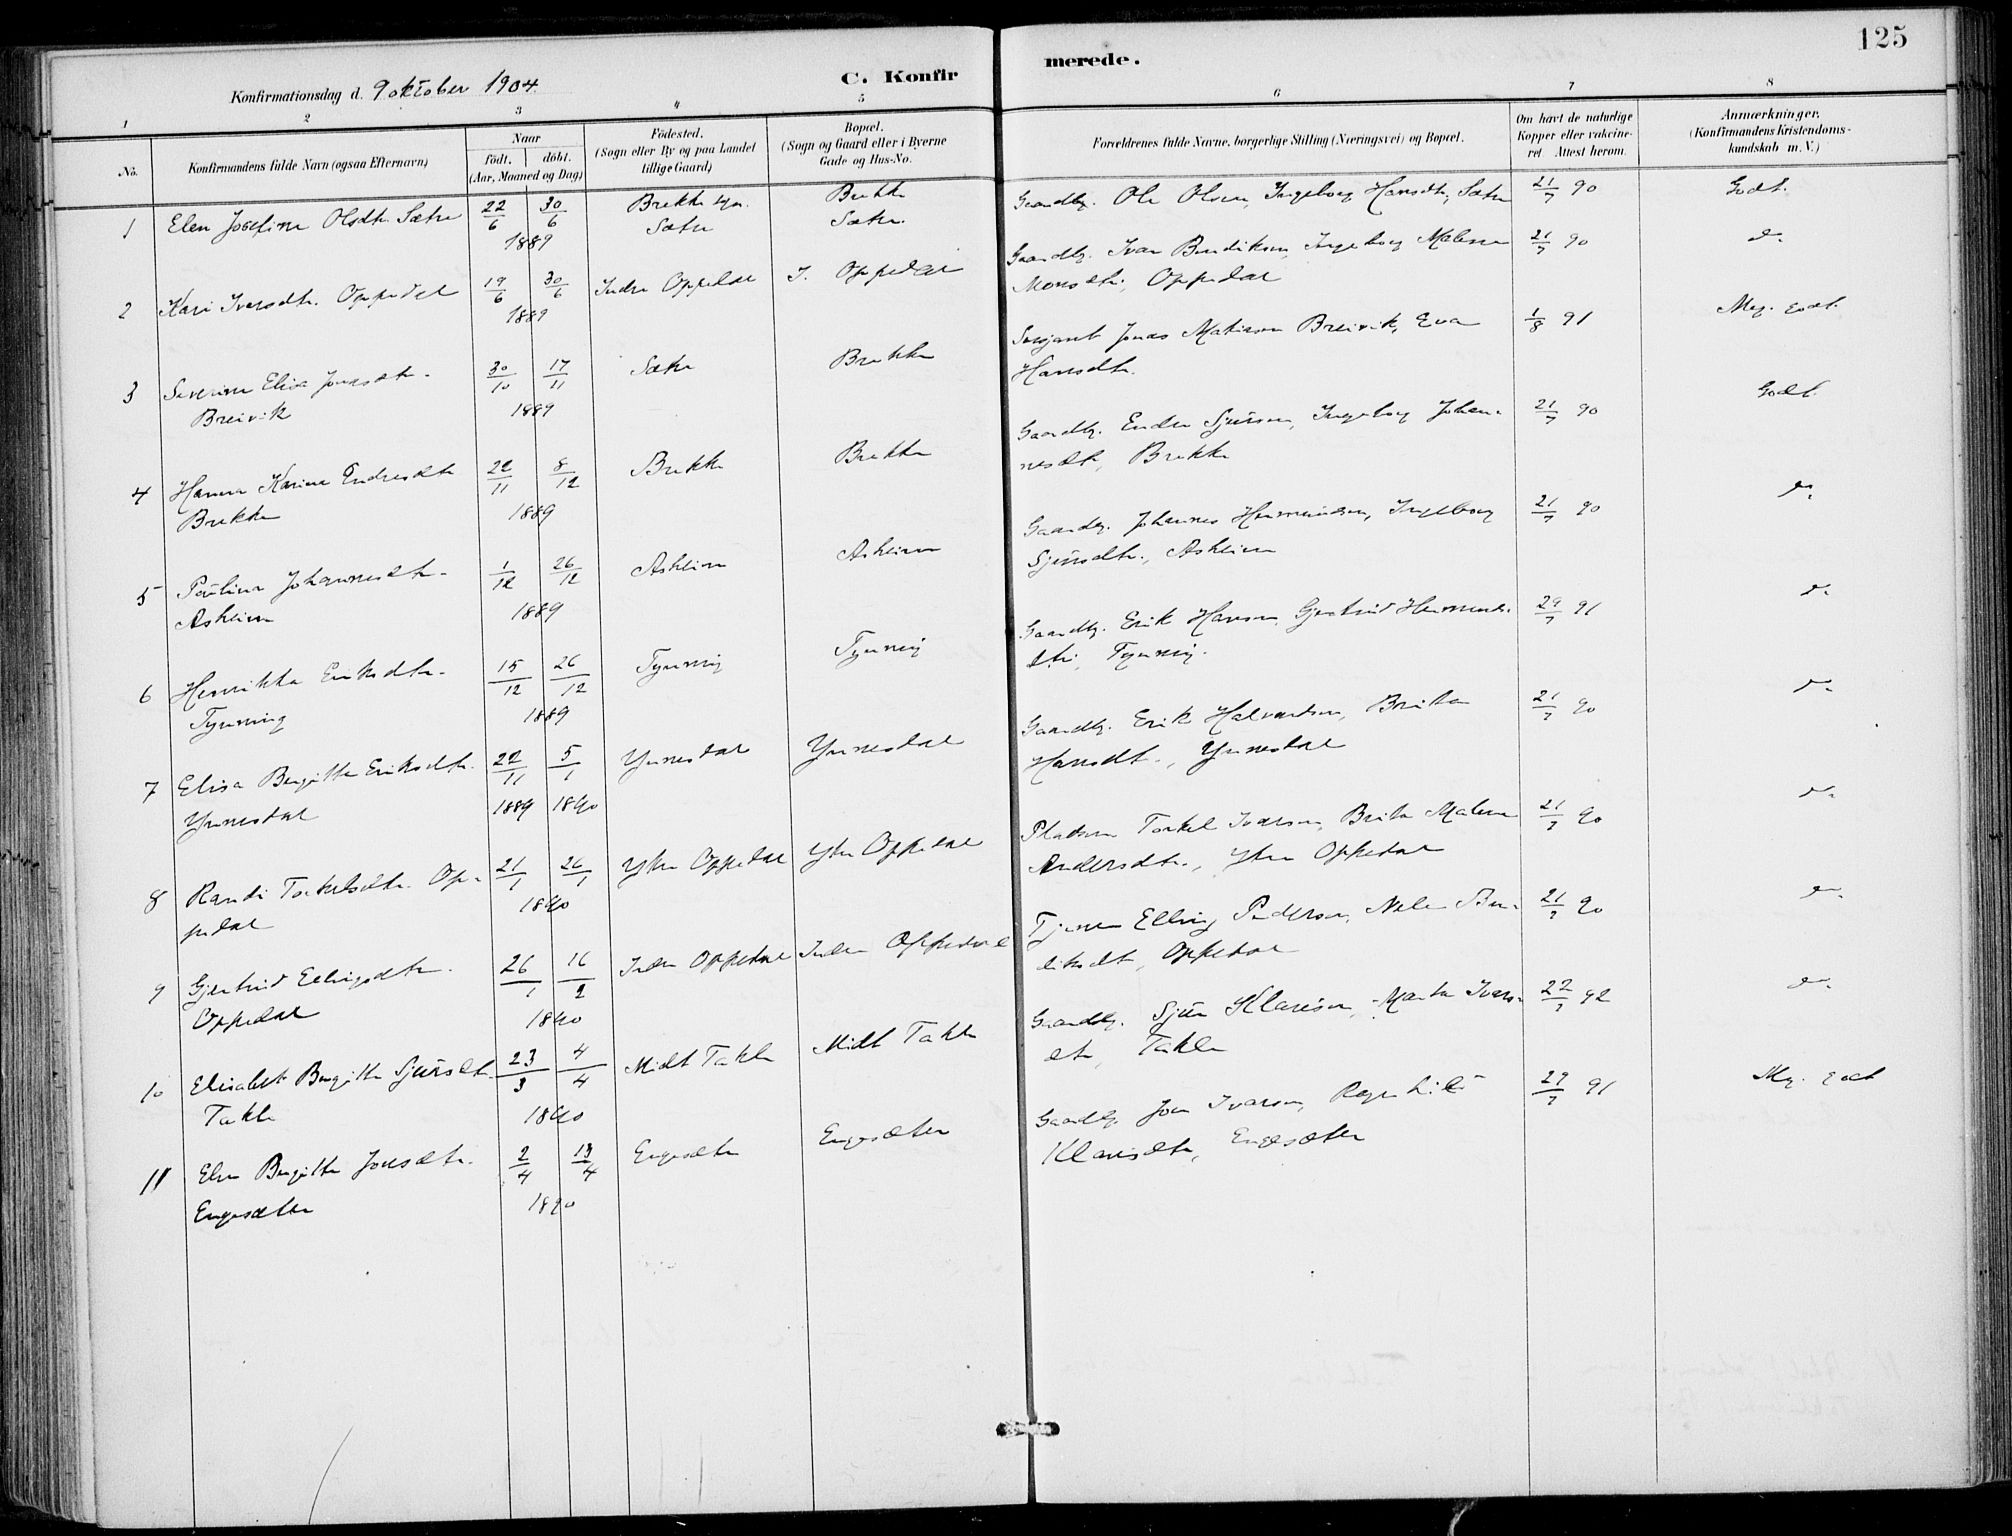 125
C. Konfir
merede.
Konfirmationsdag d. 9 oktober 1904.
1 2 3 4 5 6 7 8
No.
Konfirmandens fulde Navn (ogsaa Efternavn)
Naar
født. døbt.
(Aar, Maaned og Dag)
Fødested.
(Sogn eller By og paa Landet
tillige Gaard)
Bopæl.
(Sogn og Gaard eller i Byerne
Gade og Hus-No.
Forældrenes fulde Navne, borgerlige Stilling (Næringsvei) og Bopæl.
Om havt de naturlige
Kopper eller vakcine-
ret Attest herom.
Anmærkninger.
(Konfirmandens Kristendoms-
kundskab m. V.)
1 Elen Josefine Olsdtr. Sætre 22/6 30/6 Brekke sgn. Brekke Gaardbr. Ole Olsen, Ingeborg Hansdtr., Sætre 21/7 90 Godt.
1889 Sætre Sætre.
2 Kari Iversdtr. Oppedal 19/6 30/6 Indre Oppedal I. Oppedal Gaardbr. Ivar Bendiksen, Ingeborg Malene 21/7 90 do.
1889 Monsdtr., Oppedal
3 Severine Elisa Jonasdtr. 30/10 17/11 Sætre Brekke Sersjant Jonas Matiasen Breivik, Eva 1/8 91 Meg. godt.
Breivik 1889 Hansdtr.
4 Hanna Karina Endresdtr. 22/11 8/12 Brekke Brekke Gaardbr. Endre Sjursen, Ingeborg Johan- 21/7 90 Godt.
Brekke 1889 nesdtr., Brekke
5 Paulina Johannesdtr. 1/12 26/12 Asheim Asheim Gaardbr. Johannes Hermundsen, Ingeborg 21/7 90 do.
Asheim 1889 Sjursdtr., Asheim
6 Henrikka Eriksdtr. 15/12 26/12 Tynning Tynning Gaardbr. Erik Hansen, Gjertrud Hermunds- 29/7 91 do.
Tynning 1889 dtr., Tynning.
7 Elisa Bergitte Eriksdtr. 22/11 5/1 Ynnesdal Ynnesdal Gaardbr. Erik Halvardsen, Brita 21/7 90 do.
Ynnesdal 1889 1890 Hansdtr., Ynnesdal
8 Randi Torkelsdtr. Op- 21/1 26/1 Ytre Oppedal Ytre Oppedal Pladsm. Torkel Ivarsen, Brita Malene 21/7 90 do.
pedal 1890 Andersdtr., Ytre Oppedal
9 Gjertrud Ellingsdtr. 26/1 16/2 Indre Oppedal Indre Oppedal Tjener Elling Pedersen, Nele Ben- 21/7 90 do.
Oppedal 1890 diksdtr., Oppedal
10 Elisabet Bergitte Sjursdtr. 23/3 4/4 Midt Takle Midt Takle Gaardbr. Sjur Klausen, Marta Ivers- 22/7 92 do.
Takle 1890 dtr., Takle
11 Elen Bergitte Jonsdtr. 2/4 13/4 Engesæter Engesæter Gaardbr. Jon Ivarsen, Ragnhild 29/7 91 Mg. godt
Engesæter 1890 Klausdtr., Engesæter